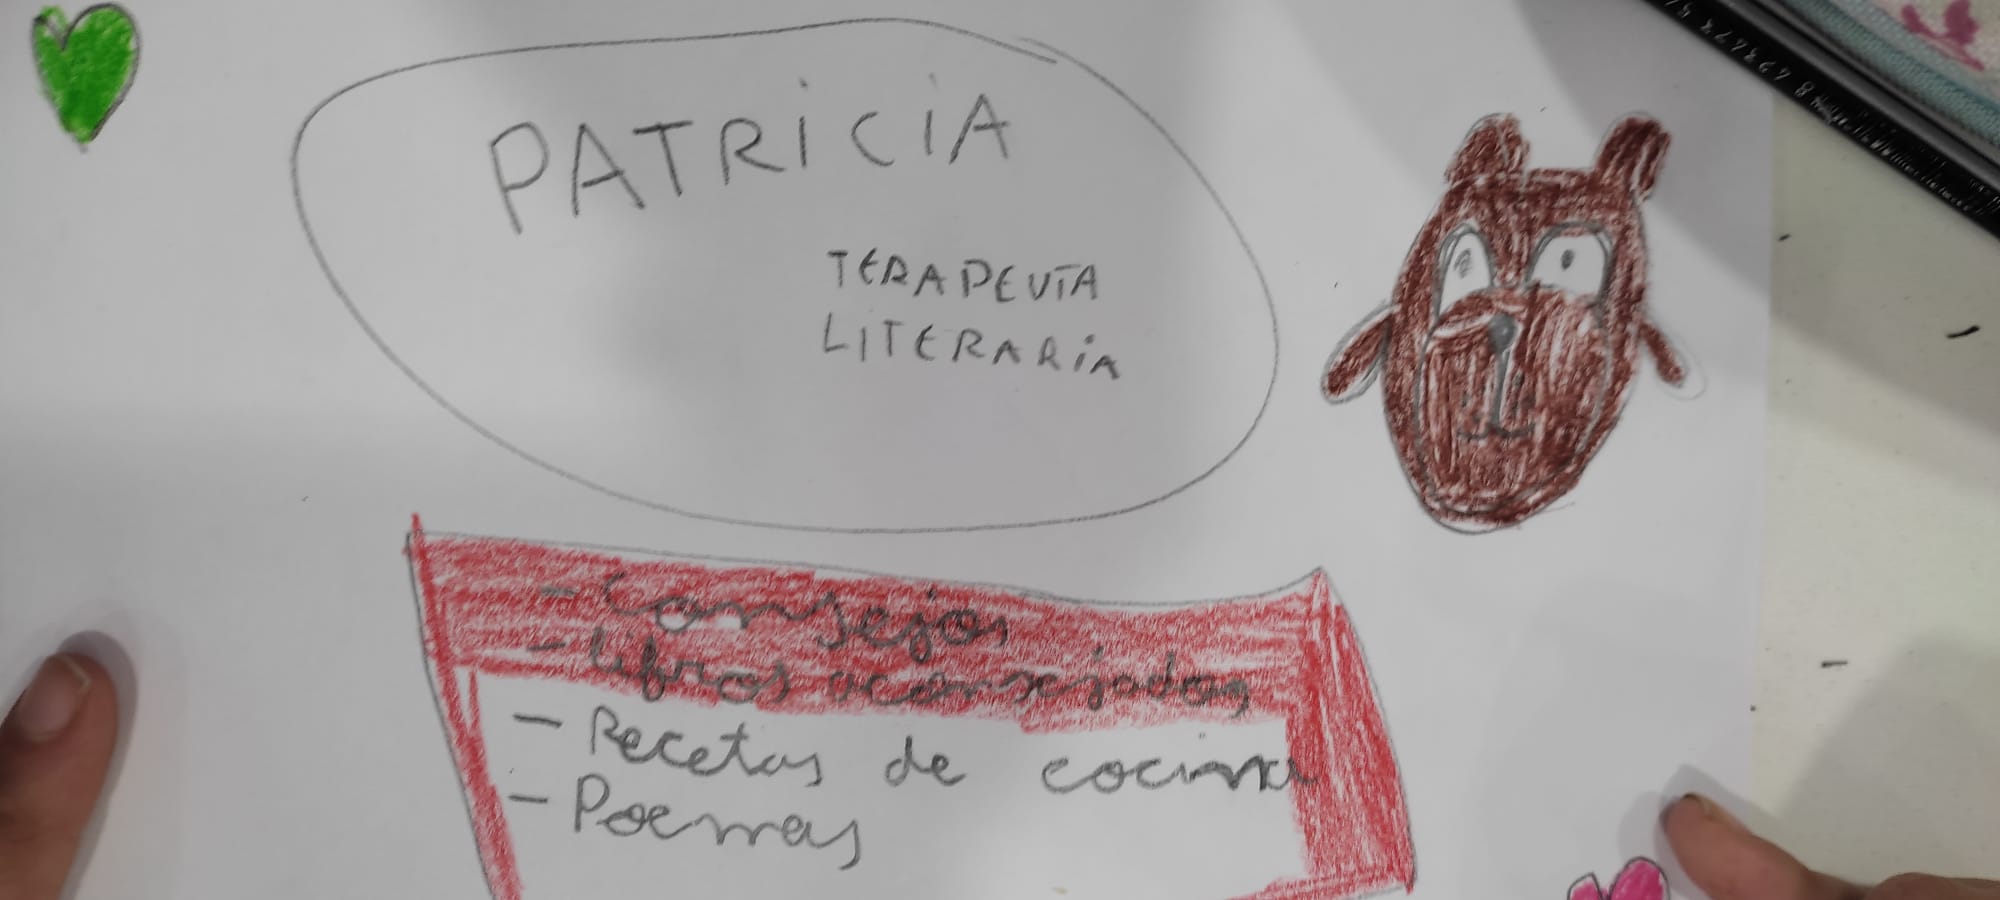 PATRICIA
TERAPEUTA
LITERARIA
- Consejos
- libros aconsejados
- Recetas de cocina
- Poemas